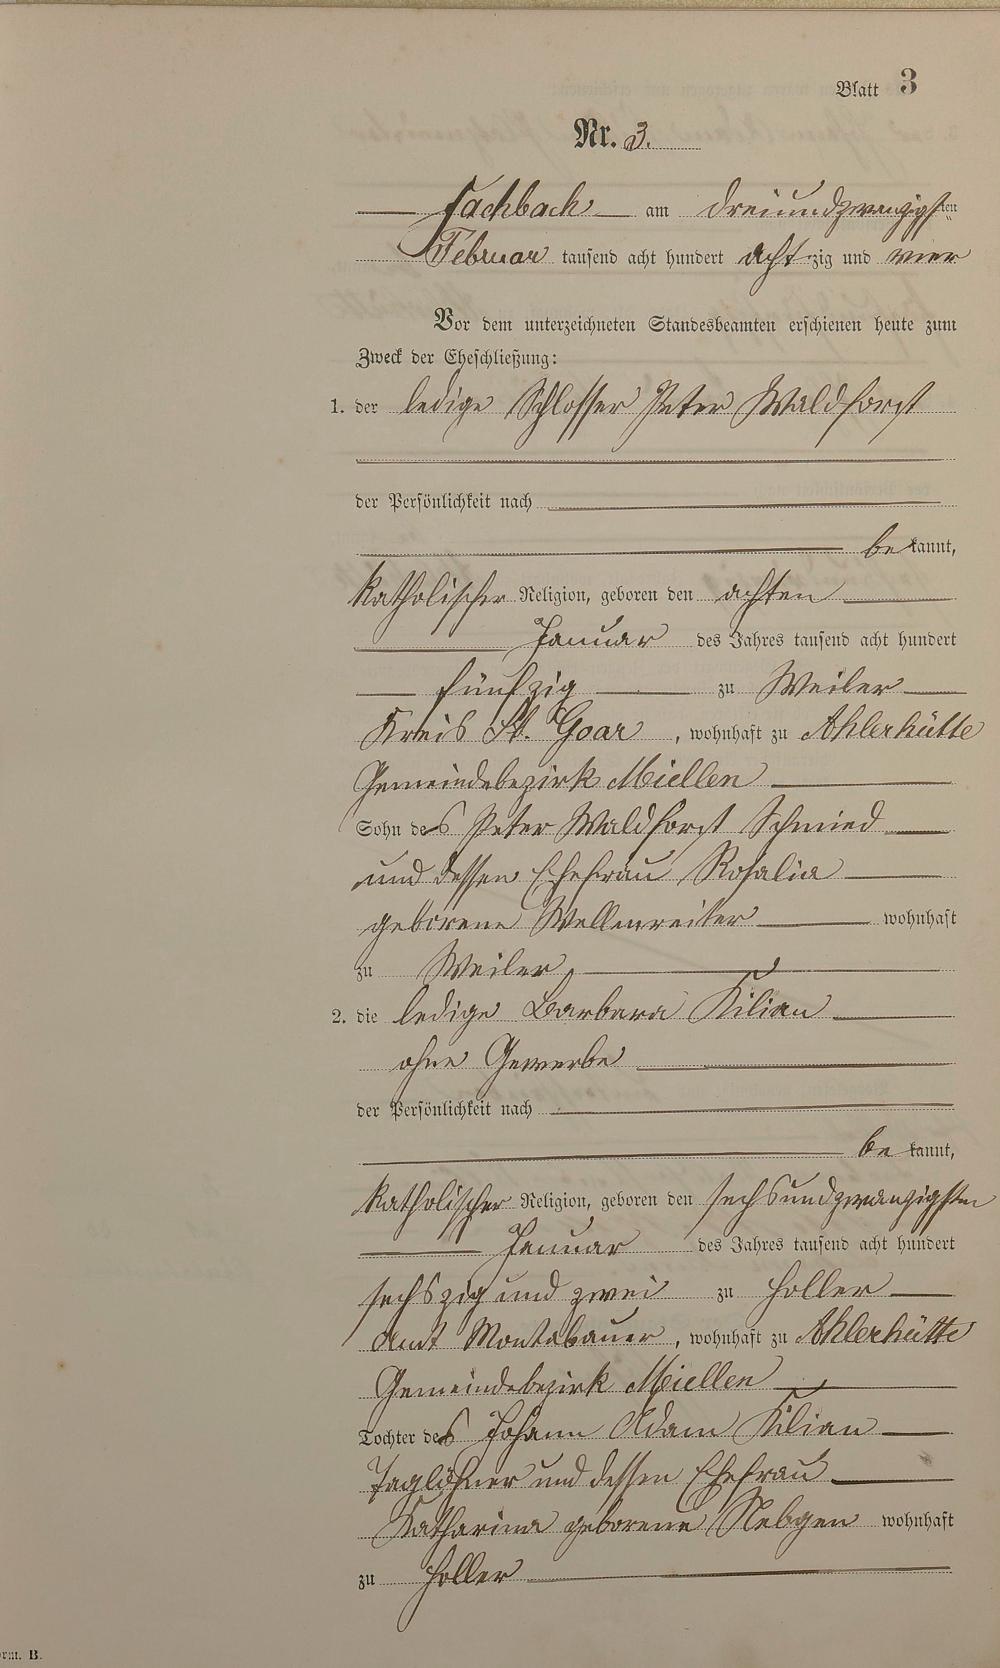 Blatt 3
Nr. 3.
Fachbach am dreiundzwanzigsten
Februar tausend acht hundert achtzig und vier
Vor dem unterzeichneten Standesbeamten erschienen heute zum
Zweck der Eheschließung:
1. der ledige Schlosser Peter Waldforst
der Persönlichkeit nach
be kannt,
katholischer Religion, geboren den achten
Januar des Jahres tausend acht hundert
fünfzig zu Weiler
Kreis St. Goar, wohnhaft zu Ahlerhütte
Gemeindebezirk Miellen
Sohn des Peter Waldforst Schmied
und dessen Ehefrau Rosalia
geborene Wellenreiter wohnhaft
zu Weiler
2. die ledige Barbara Kilian
ohne Gewerbe
der Persönlichkeit nach
be kannt,
katholischer Religion, geboren den sechsundzwanzigsten
Januar des Jahres tausend acht hundert
sechszig und zwei zu Holler
Amt Montabauer, wohnhaft zu Ahlerhütte
Gemeindebezirk Miellen
Tochter des Johann Adam Kilian
Taglöhner und dessen Ehefrau
Katharina geborene Nebgen wohnhaft
zu Holler
B.